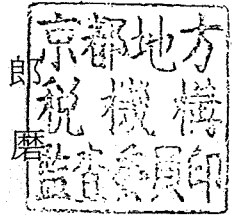 京都地方
税機構
監査委員印
郎
磨